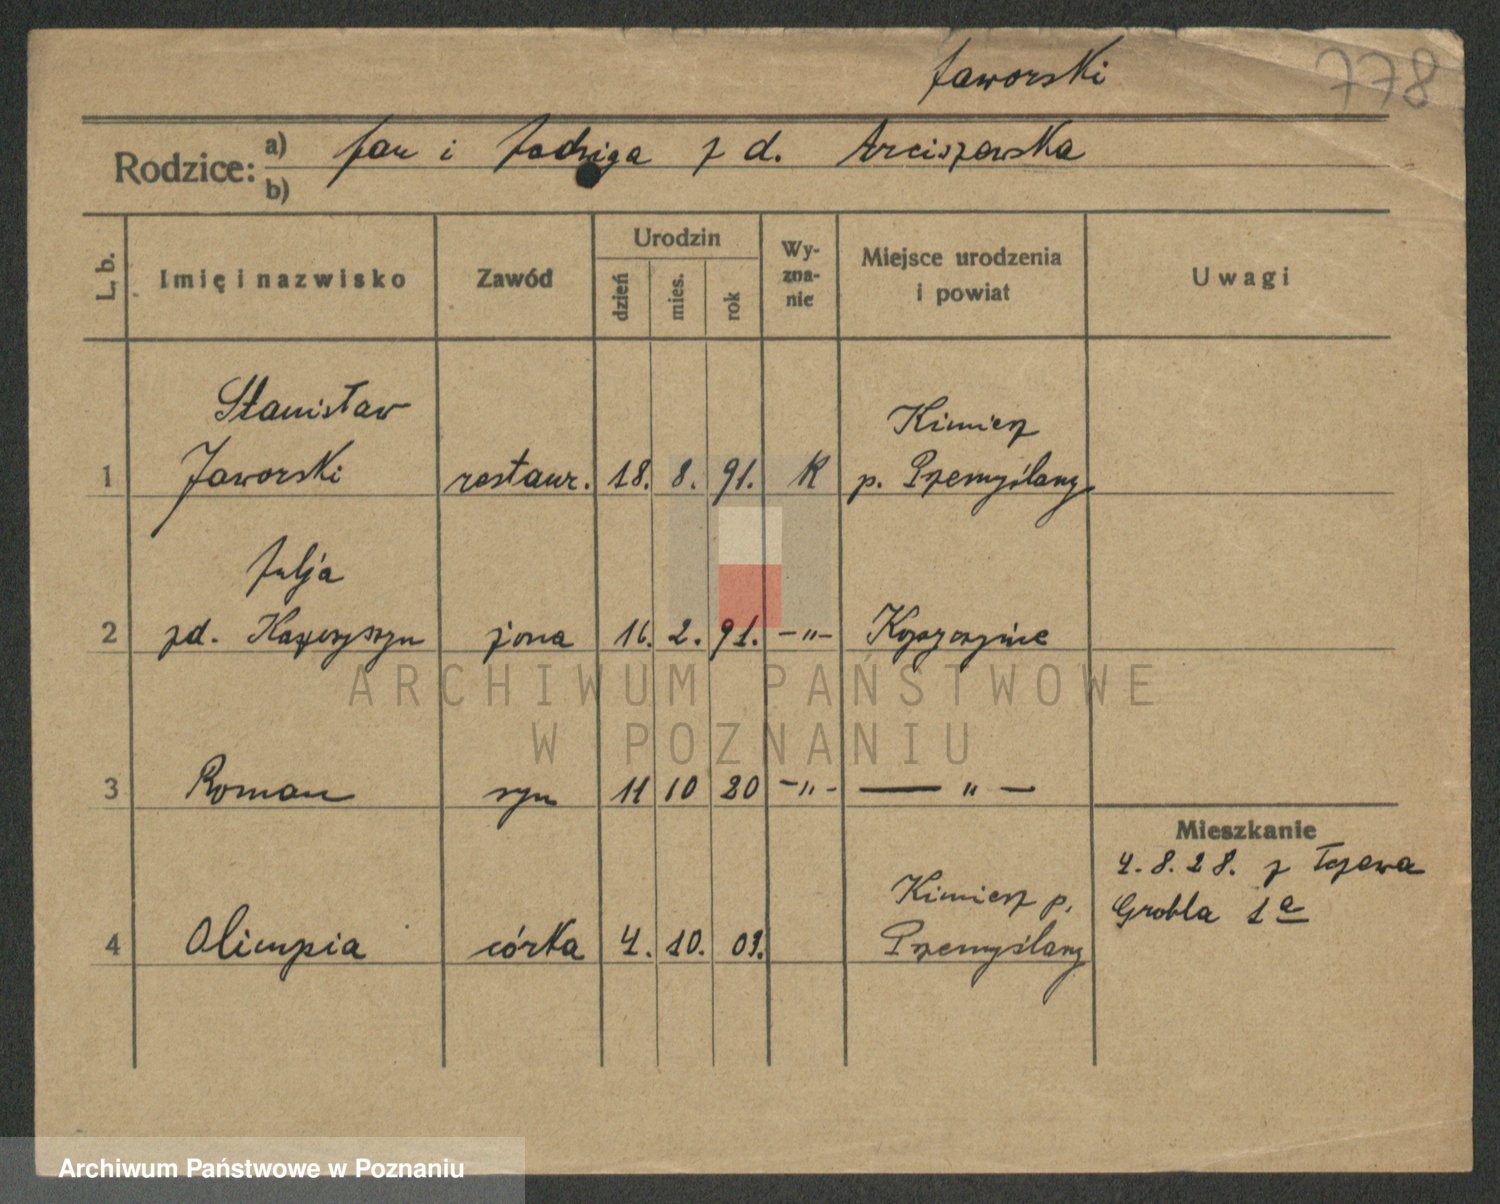 Jaworski
778
Rodzice: a) Jan i Jadwiga z d. Arciszewska
b)
L. b.
Imię i nazwisko
Zawód
Urodzin
dzień
mies.
rok
Wy-
zna-
nie
Miejsce urodzenia
i powiat
Uwagi
Stanisław
Kimierz
1 Jaworski restaur. 18. 8. 91. K p. Przemyślany
Julja
2 zd. żona 16. 2. 91. —"—
3 Roman syn 11 10 20 —"— —"—
Mieszkanie
4. 8. 28. z Tczewa
Kimierz p.
Grobla 1a
4 Olimpia córka 4. 10. 09. Przemyślany
ARCHIWUM PAŃSTWOWE
W POZNANIU
Archiwum Państwowe w Poznaniu